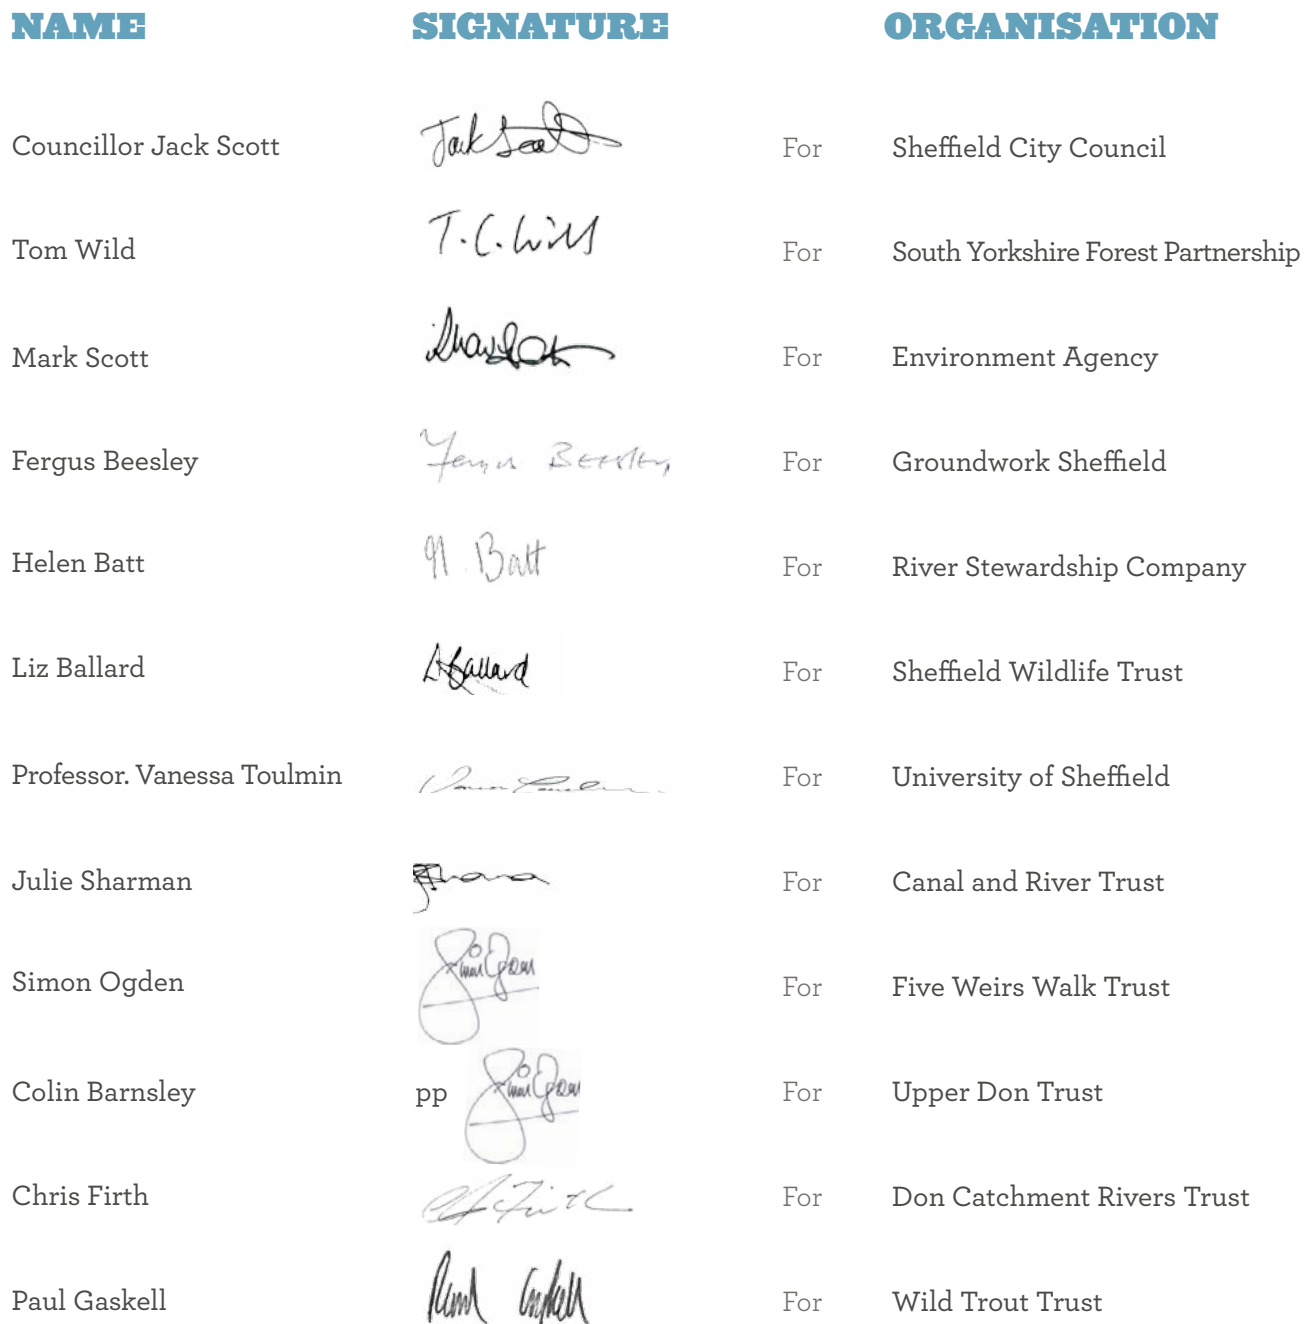 NAME SIGNATURE ORGANISATION
Councillor Jack Scott Jack Scott For Sheffield City Council
Tom Wild T. C. Wild For South Yorkshire Forest Partnership
Mark Scott For Environment Agency
Fergus Beesley Fergus Beesley For Groundwork Sheffield
Helen Batt H. Batt For River Stewardship Company
Liz Ballard Ballard For Sheffield Wildlife Trust
Professor. Vanessa Toulmin For University of Sheffield
Julie Sharman For Canal and River Trust
Simon Ogden Simon Ogden For Five Weirs Walk Trust
Colin Barnsley pp Simon Ogden For Upper Don Trust
Chris Firth Firth For Don Catchment Rivers Trust
Paul Gaskell Paul Gaskell For Wild Trout Trust